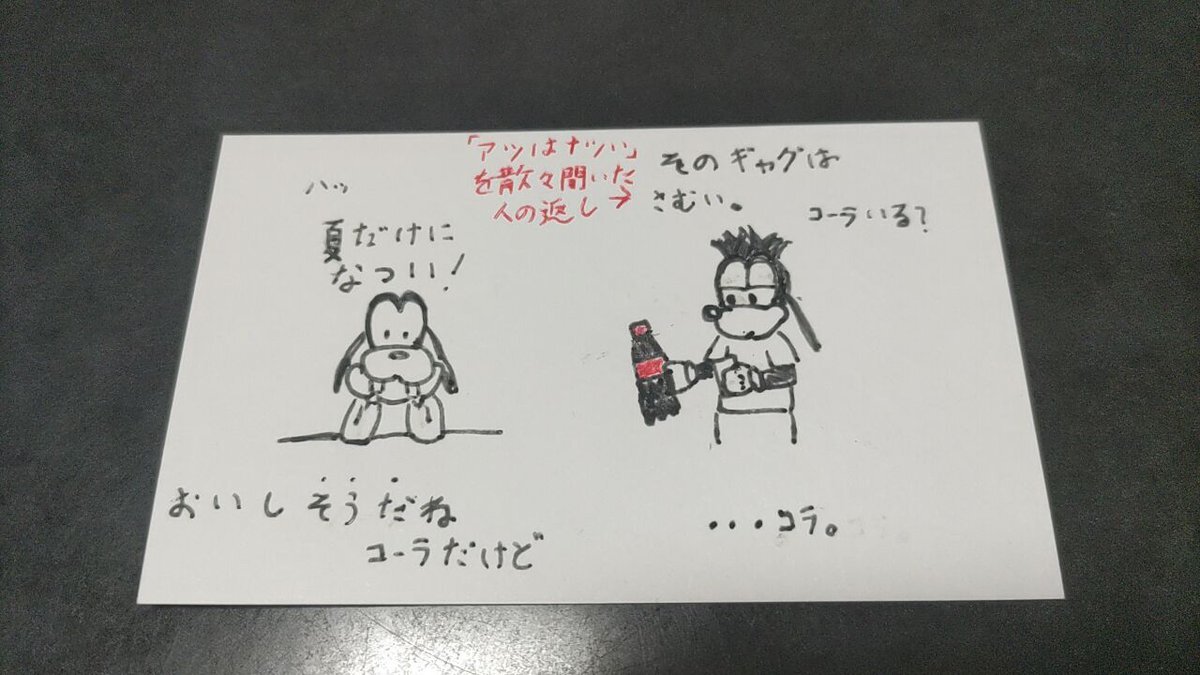 ハッ
夏だけに
なつい!
「アツはナツい」
を散々聞いた
人の返し→
そのギャグは
さむい。
コーラいる?
おいしそうだね
コーラだけど
・・・コラ。